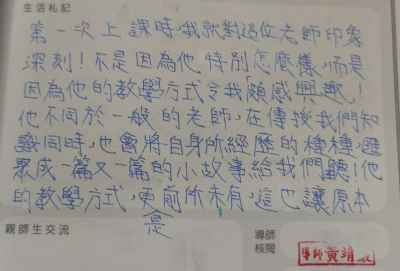 生活札記
第一次上課時,我就對這位老師印象
深刻!不是因為他特別怎麼樣,而是
因為他的教學方式令我頗感興趣!
他不同於一般的老師,在傳授我們知
識同時,也會將自身所經歷的種種,匯
聚成一篇又一篇的小故事給我們聽!他
的教學方式,更是前所未有,這也讓原本
親師生交流
導師
核閱
導師黃靖